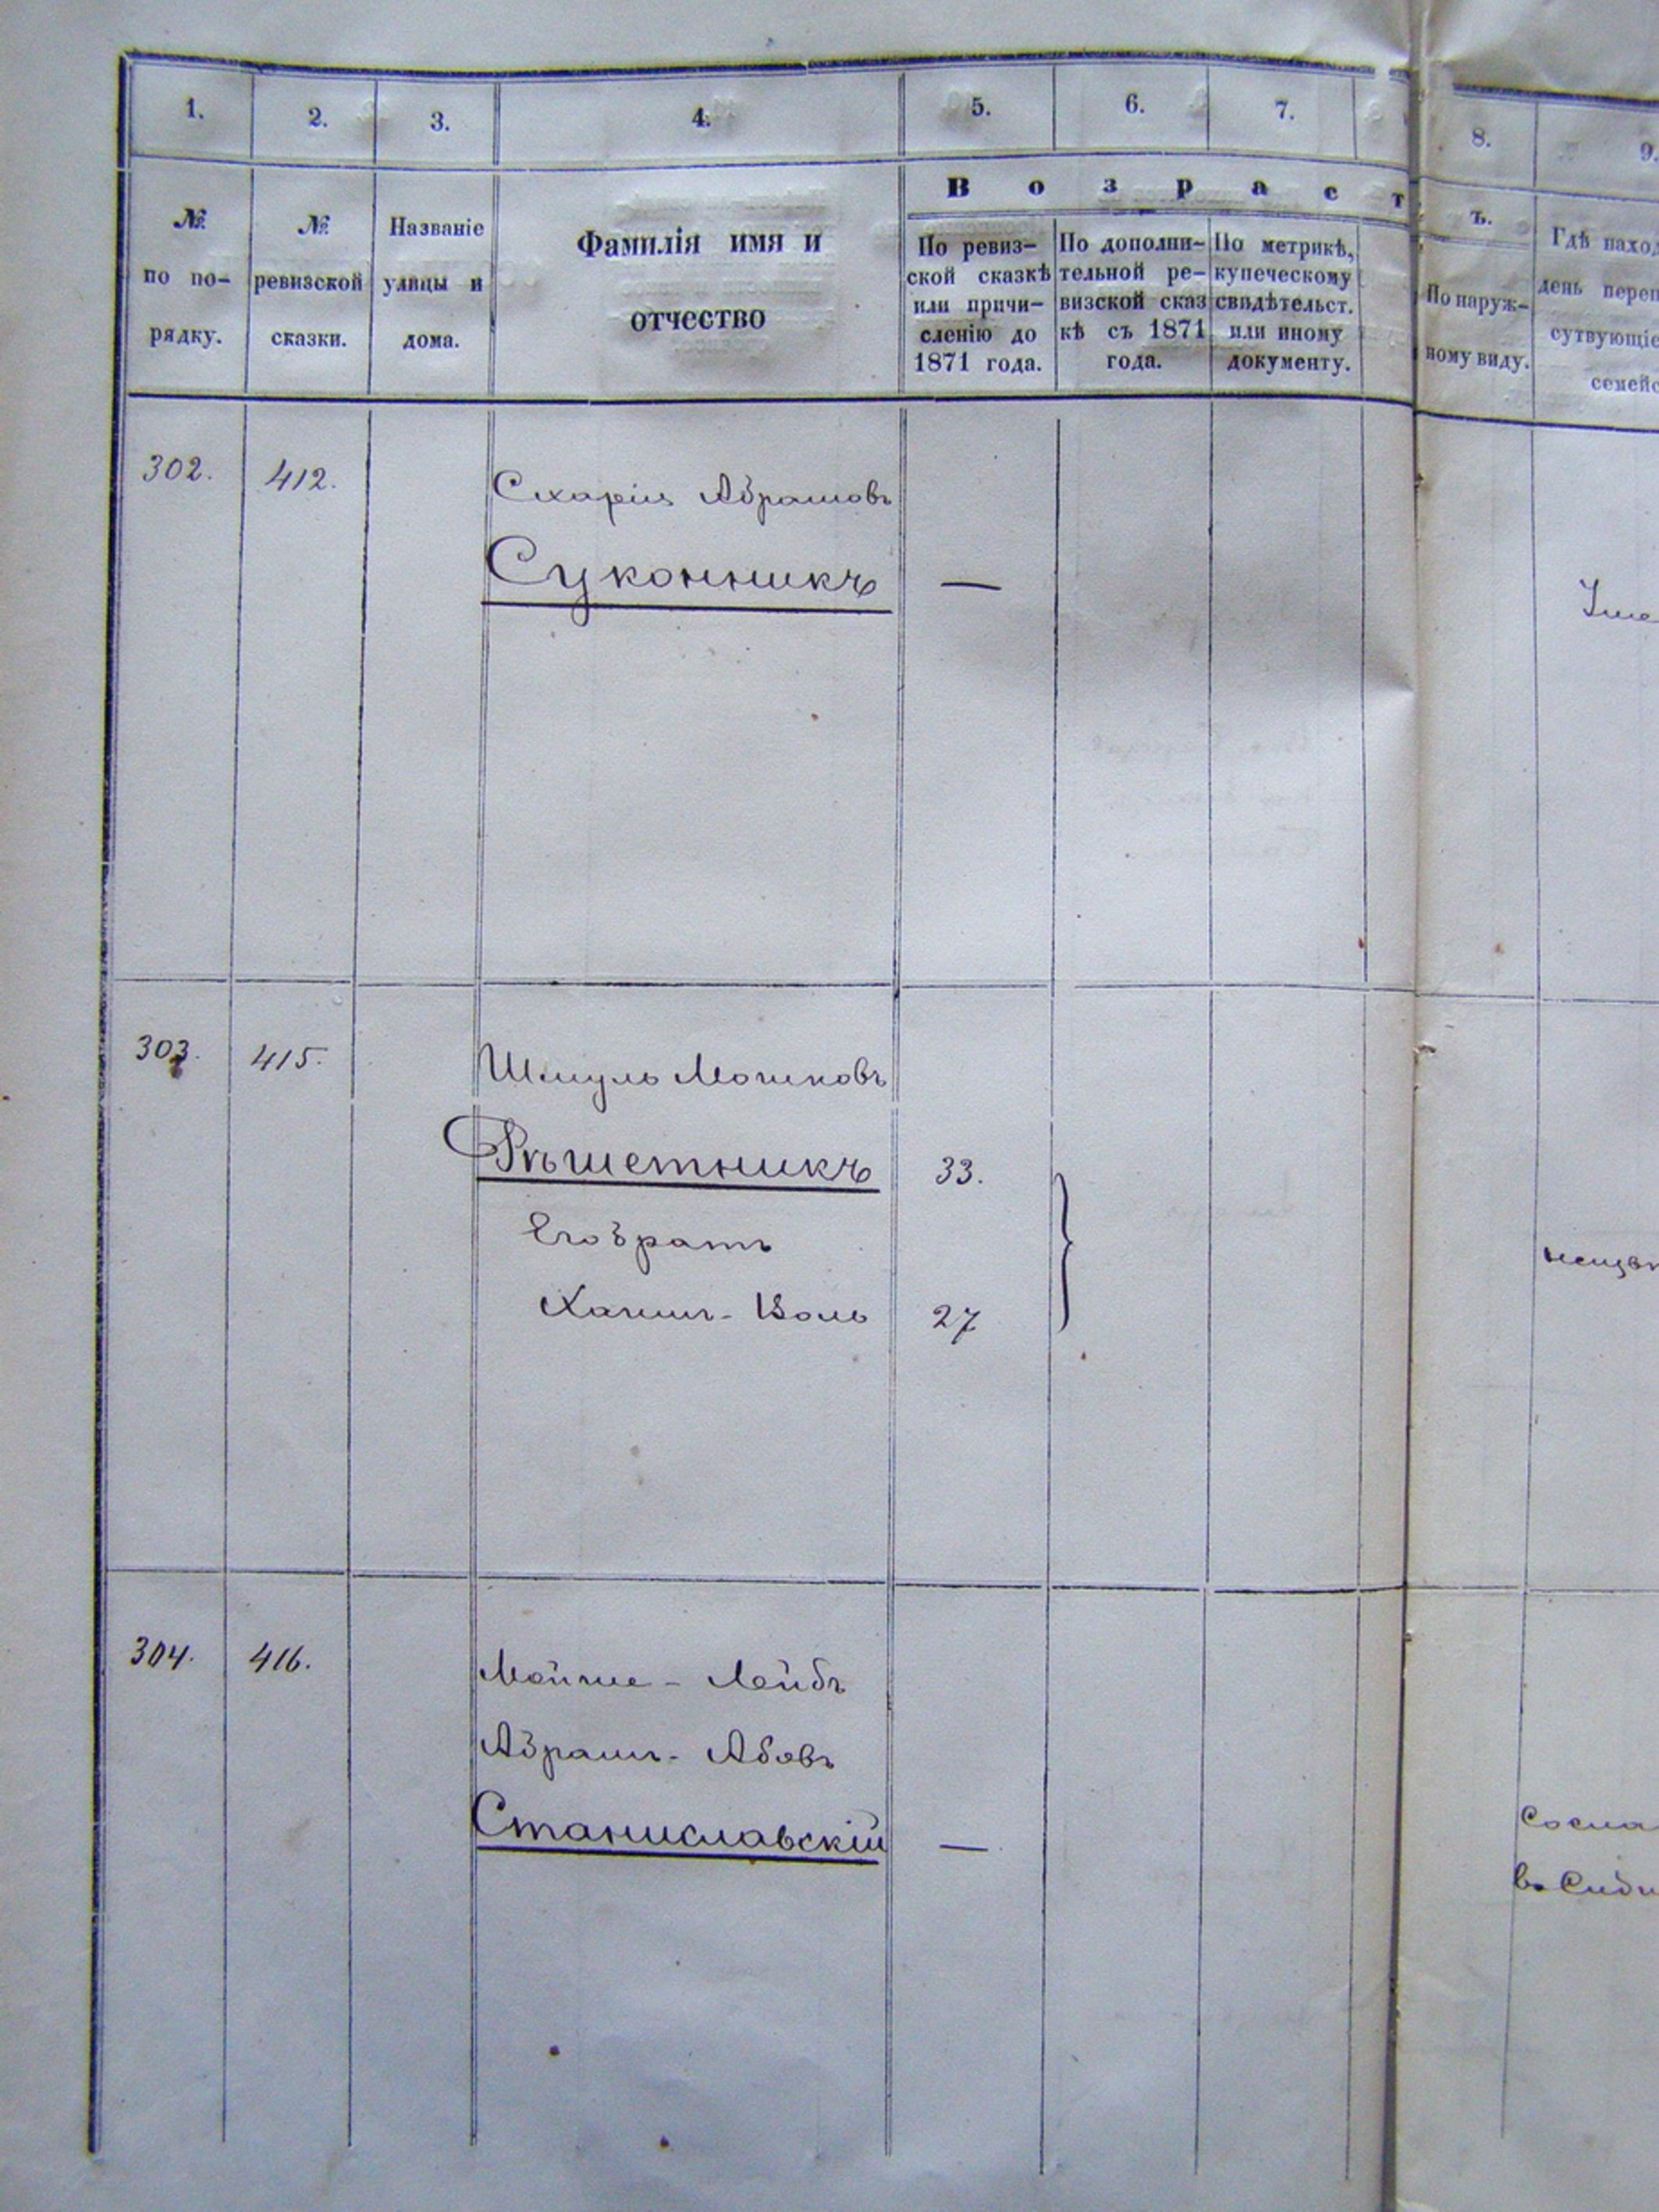 1.
2.
3.
4.
5.
6.
7.
8.
9.
№ по по-рядку.
№ ревизской сказки.
Названіе улицы и дома.
Фамилія имя и
отчество
В о з р а с т
ъ.
По ревиз-
ской сказкѣ
или причи-
сленію до
1871 года.
По дополни-
тельной ре-
визской сказ
кѣ съ 1871
года.
По метрикѣ,
купеческому
свидѣтельст.
или иному
документу.
По наруж-
ному виду.
Гдѣ наход
день переп
сутвующіе
семейс
302. 412. Схарія Абрамовъ
Суконникъ —
303. 415. Шмуль Мошковъ
Рѣшетникъ 33.
Его братъ
Хаимъ-Воль 27
304. 416. Мойше-Лейбъ
Абрамъ-Абовъ
Станиславскій —
Сосла
въ Сиби